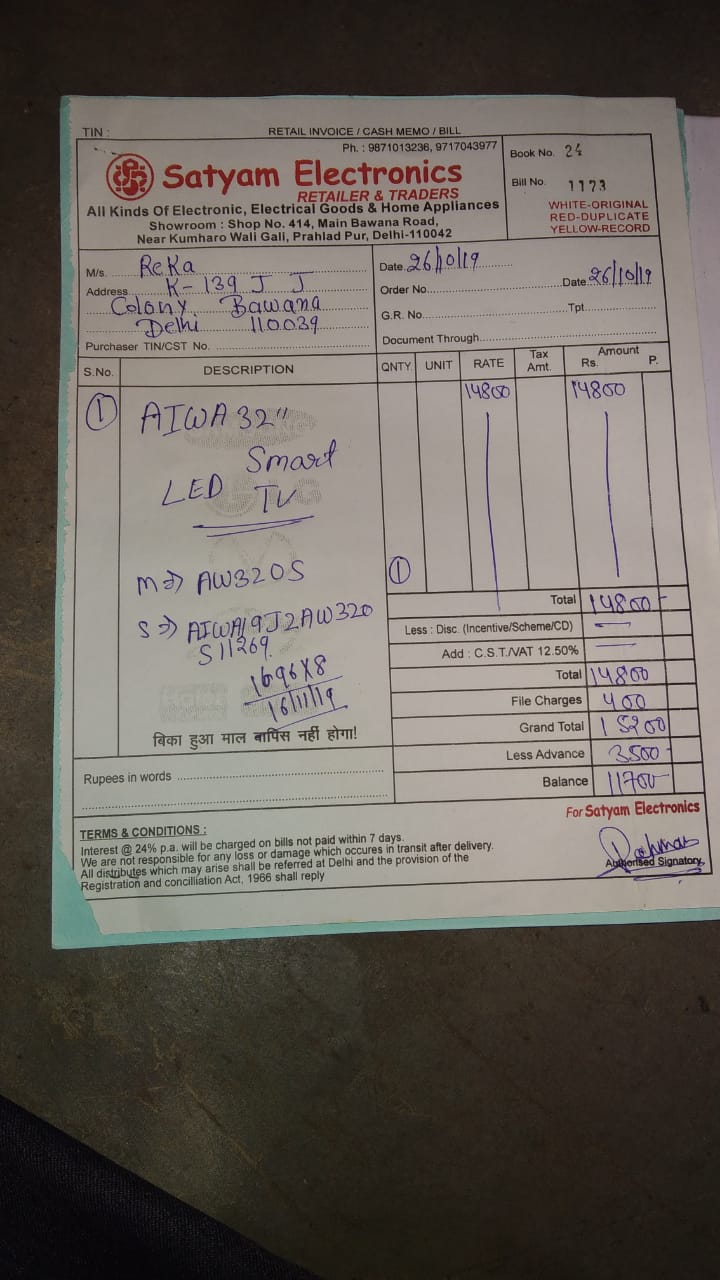 TIN :
RETAIL INVOICE / CASH MEMO / BILL
Ph. : 9871013236, 9717043977
Satyam Electronics
RETAILER & TRADERS
All Kinds Of Electronic, Electrical Goods & Home Appliances
Showroom : Shop No. 414, Main Bawana Road,
Near Kumharo Wali Gali, Prahlad Pur, Delhi-110042
Book No. 24
Bill No. 1173
WHITE-ORIGINAL
RED-DUPLICATE
YELLOW-RECORD
M/s. Reka
Address K-139 J J
Colony Bawana
Delhi 110039
Purchaser TIN/CST No.
Date 26/10/19
Order No. Date 26/10/19
G.R. No. Tpt.
Document Through
S.No. DESCRIPTION QNTY UNIT RATE Tax Amt. Amount Rs. P.
1 AIWA 32" 14800 14800
Smart
LED TV
M⇒ AW320S 1
S⇒ AIWA19J2AW320
S11269
1696X8
16/11/19
बिका हुआ माल वापिस नहीं होगा!
Total 14800
Less : Disc. (Incentive/Scheme/CD) —
Add : C.S.T./VAT 12.50% —
Total 14800
File Charges 400
Grand Total 15200
Less Advance 3500
Balance 11700
Rupees in words
For Satyam Electronics
Authorised Signatory
TERMS & CONDITIONS :
Interest @ 24% p.a. will be charged on bills not paid within 7 days.
We are not responsible for any loss or damage which occures in transit after delivery.
All distributes which may arise shall be referred at Delhi and the provision of the
Registration and concilliation Act, 1966 shall reply